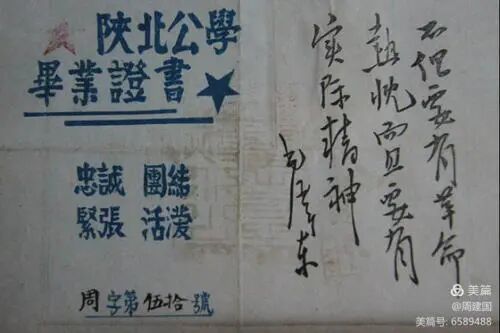 陝北公學
畢業證書
忠誠 團結
緊張 活潑
周字第伍拾號
不但要有革命
熱忱而且要有
实际精神
毛泽东
美篇
@周建国
美篇号: 6589488